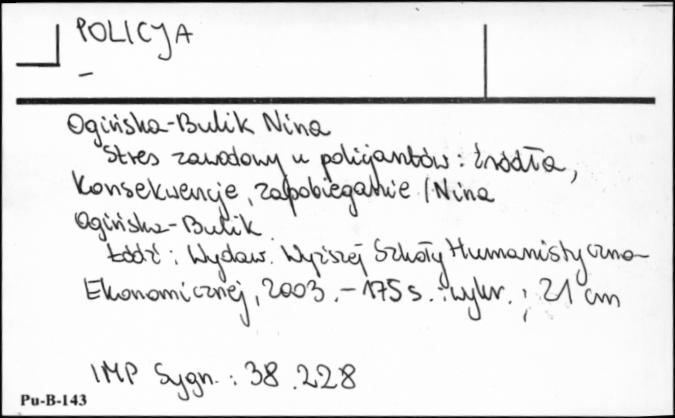 POLICJA
–
Ogińska-Bulik Nina
Stres zawodowy u policjantów : źródła,
konsekwencje, zapobieganie / Nina
Ogińska-Bulik
Łódź : Wydaw. Wyższej Szkoły Humanistyczno-
Ekonomicznej, 2003. – 175 s. : wykr. ; 21 cm
IMP Sygn. : 38.228
Pu-B-143